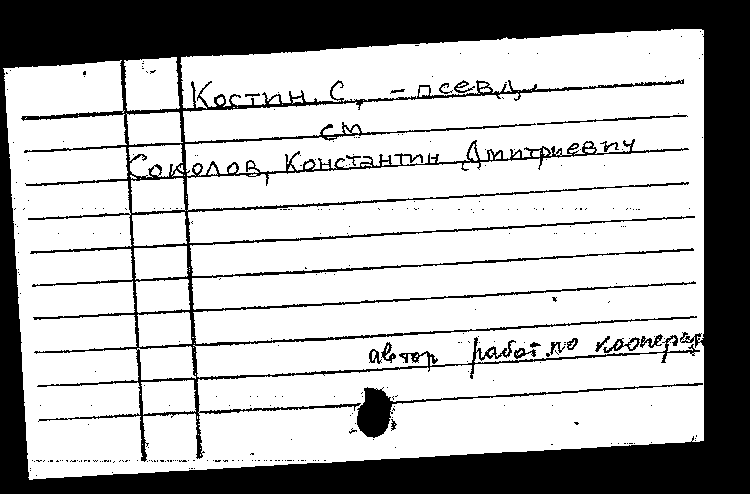 Костин, С. - псевд.
см
Соколов, Константин Дмитриевич
автор работ по коопера